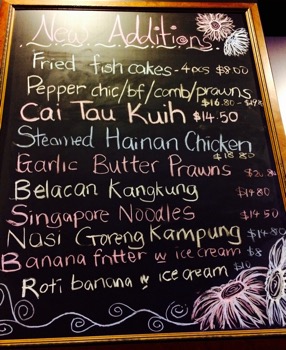 New Additions
Fried fish cakes - 4pcs $8.00
Pepper chic/bf/comb/prawns
$16.80 - $19.80
Cai Tau Kuih $14.50
Steamed Hainan Chicken
$18.80
Garlic Butter Prawns $20.80
Belacan Kangkung $14.80
Singapore Noodles $14.50
Nasi Goreng Kampung $14.80
Banana fritter w ice cream $8
Roti banana w ice cream $10